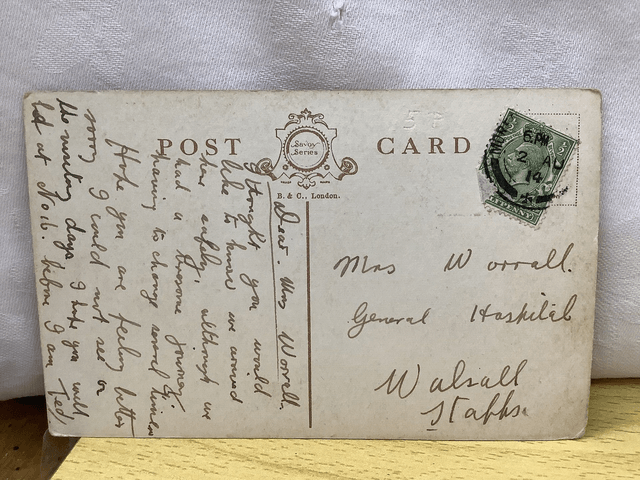 POST CARD
Savoy
Series
B. & C., London.
Dear Mrs Worrall
I thought you would
like to know we arrived
here safely, although we
had a tiresome journey.
having to change several times
Hope you are feeling better
sorry I could not see on
the visiting days I hope you will
at No 16. before I am
Mrs Worrall.
General Hospital
Walsall
Staffs.
6 PM
2
14
HALFPENNY